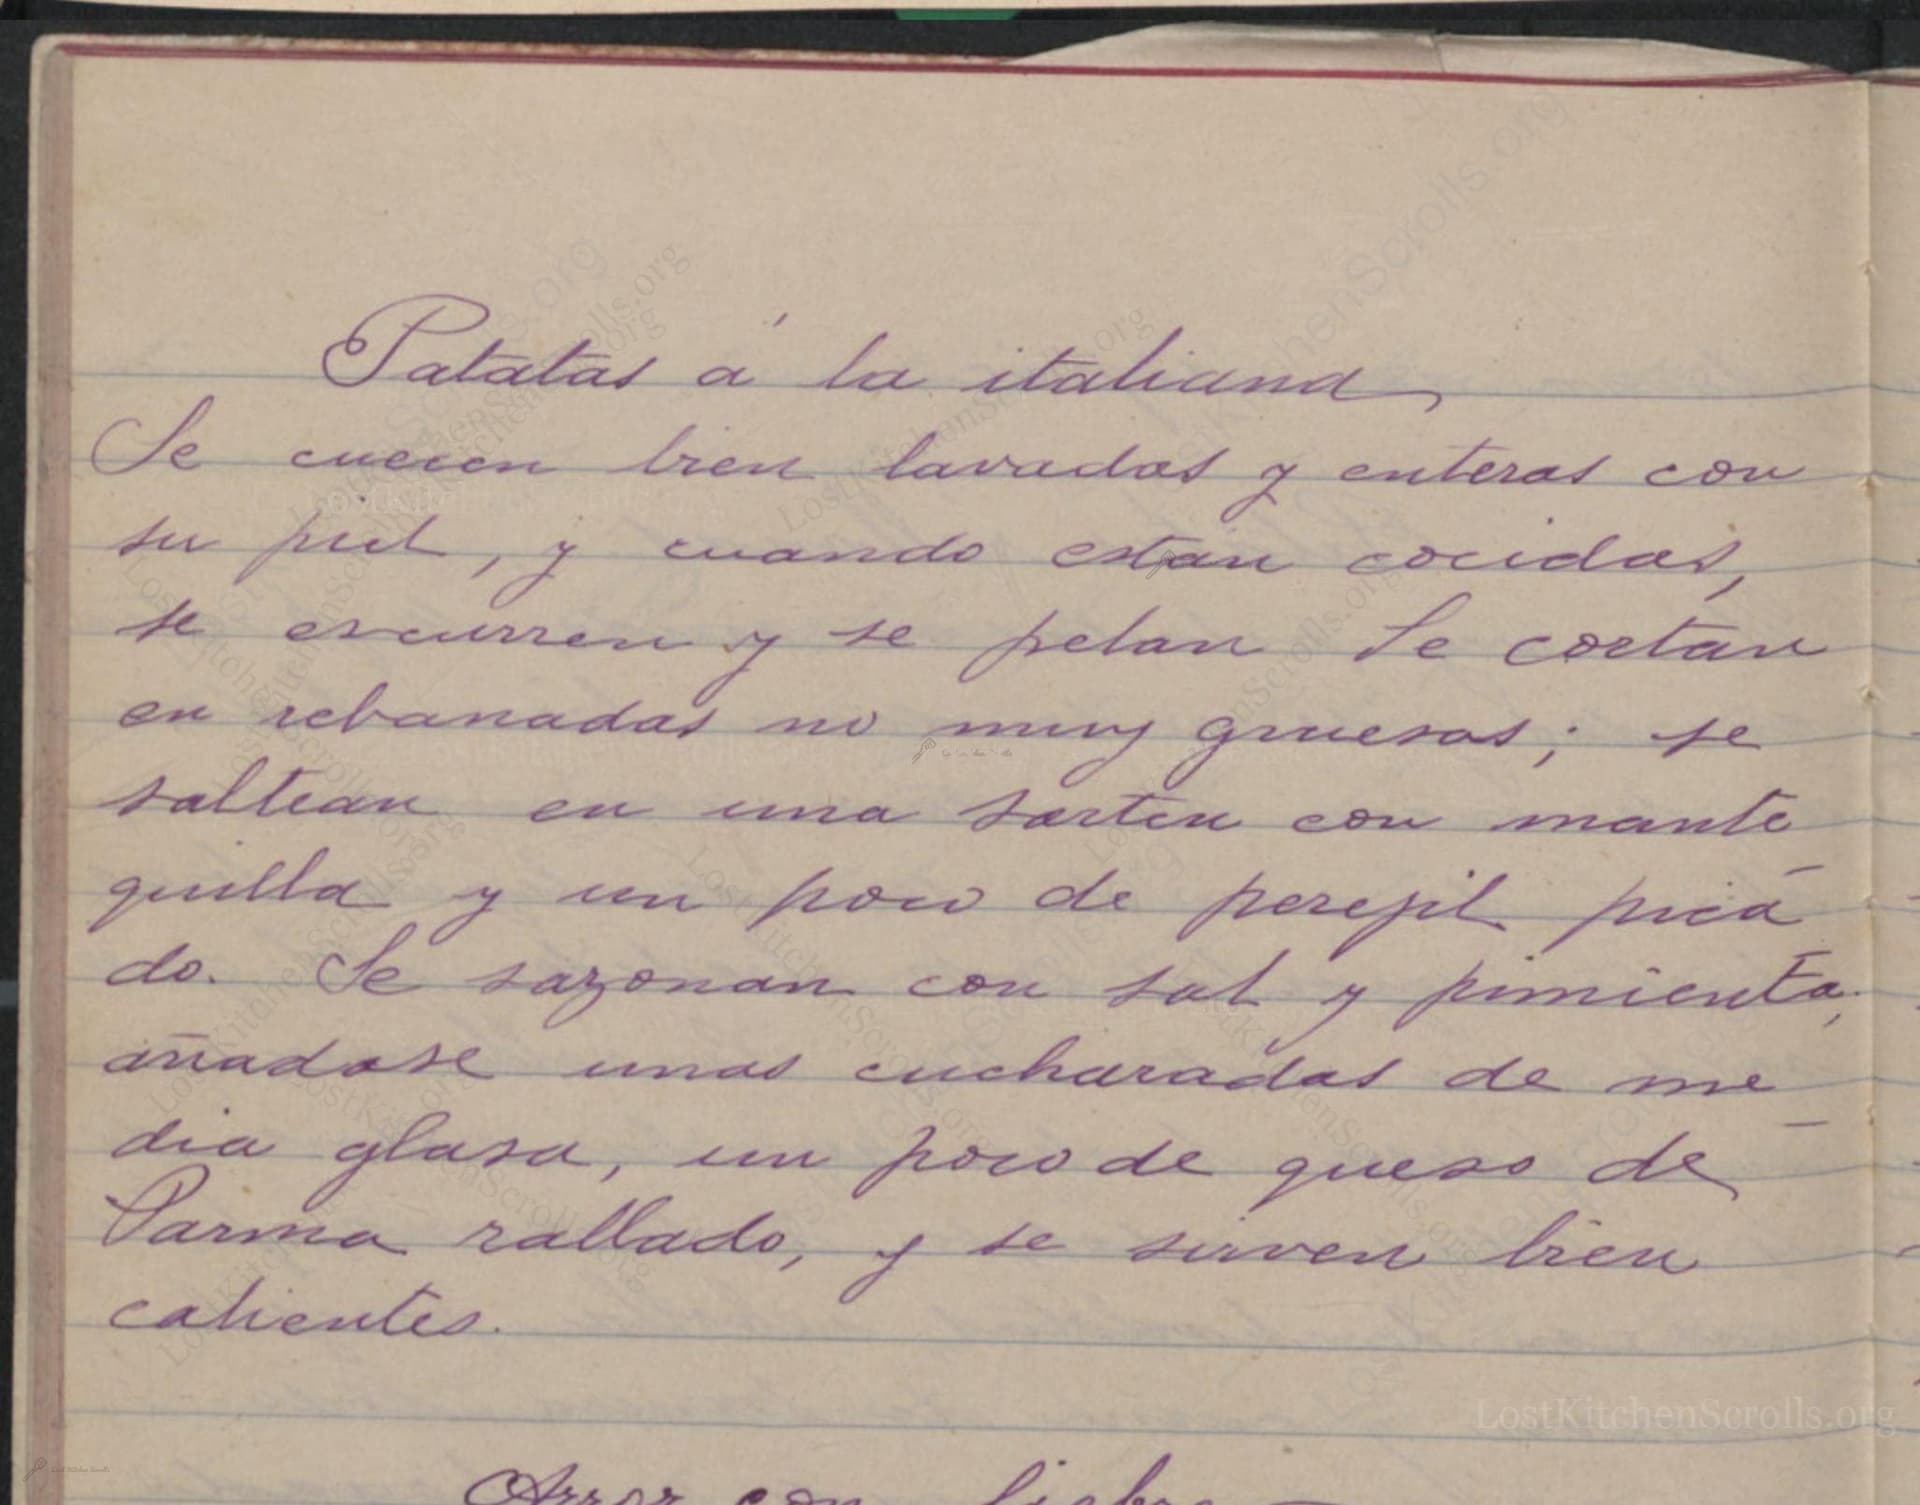 Patatas á la italiana
Se cuecen bien lavadas y enteras con
su piel, y cuando estan cocidas,
se escurren y se pelan Se cortan
en rebanadas no muy gruesas; se
saltean en una sarten con mante
quilla y un poco de perejil pica
do. Se sazonan con sal y pimienta,
añadase unas cucharadas de me
dia glasa, un poco de queso de
Parma rallado, y se sirven bien
calientes.
LostKitchenScrolls.org
Arroz con liebre